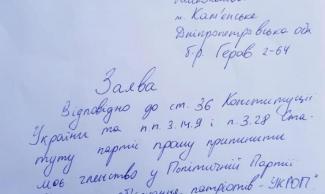 м. Кам'янське
Дніпропетровська обл
бр. Героїв 2-64
Заява
Відповідно до ст. 36 Конституції
України та п.п. 3.14.9 і п. 3.28 Ста-
туту партії прошу припинити
моє членство у Політичній Партії
патріотів - УКРОП"